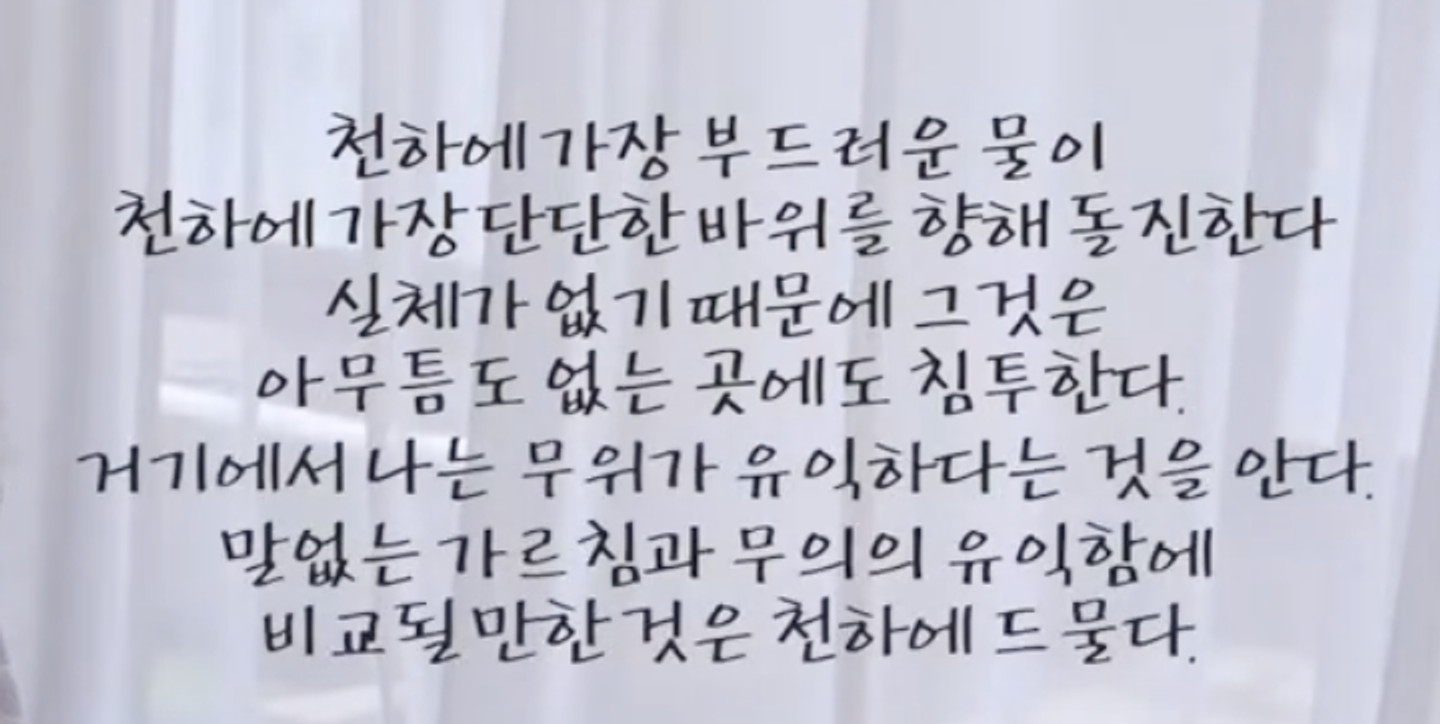 천하에 가장 부드러운 물이
천하에 가장 단단한 바위를 향해 돌진한다
실체가 없기 때문에 그것은
아무 틈도 없는 곳에도 침투한다.
거기에서 나는 무위가 유익하다는 것을 안다.
말없는 가르침과 무의의 유익함에
비교될 만한 것은 천하에 드물다.